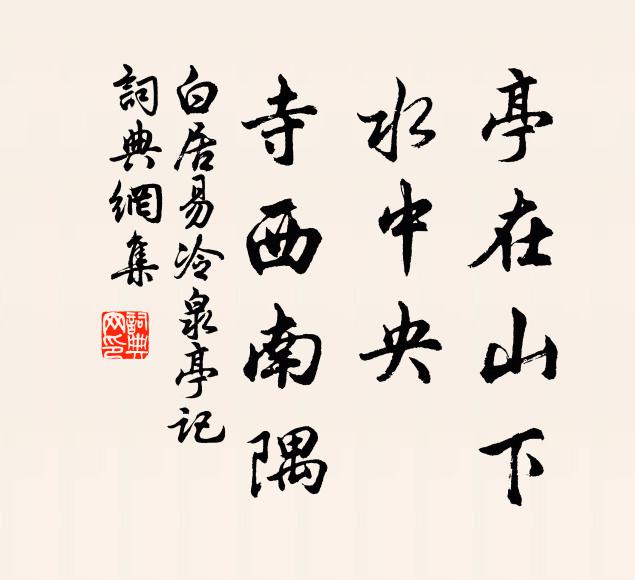 亭在山下
水中央
寺西南隅
白居易冷泉亭记
詞典網集
詞典網印